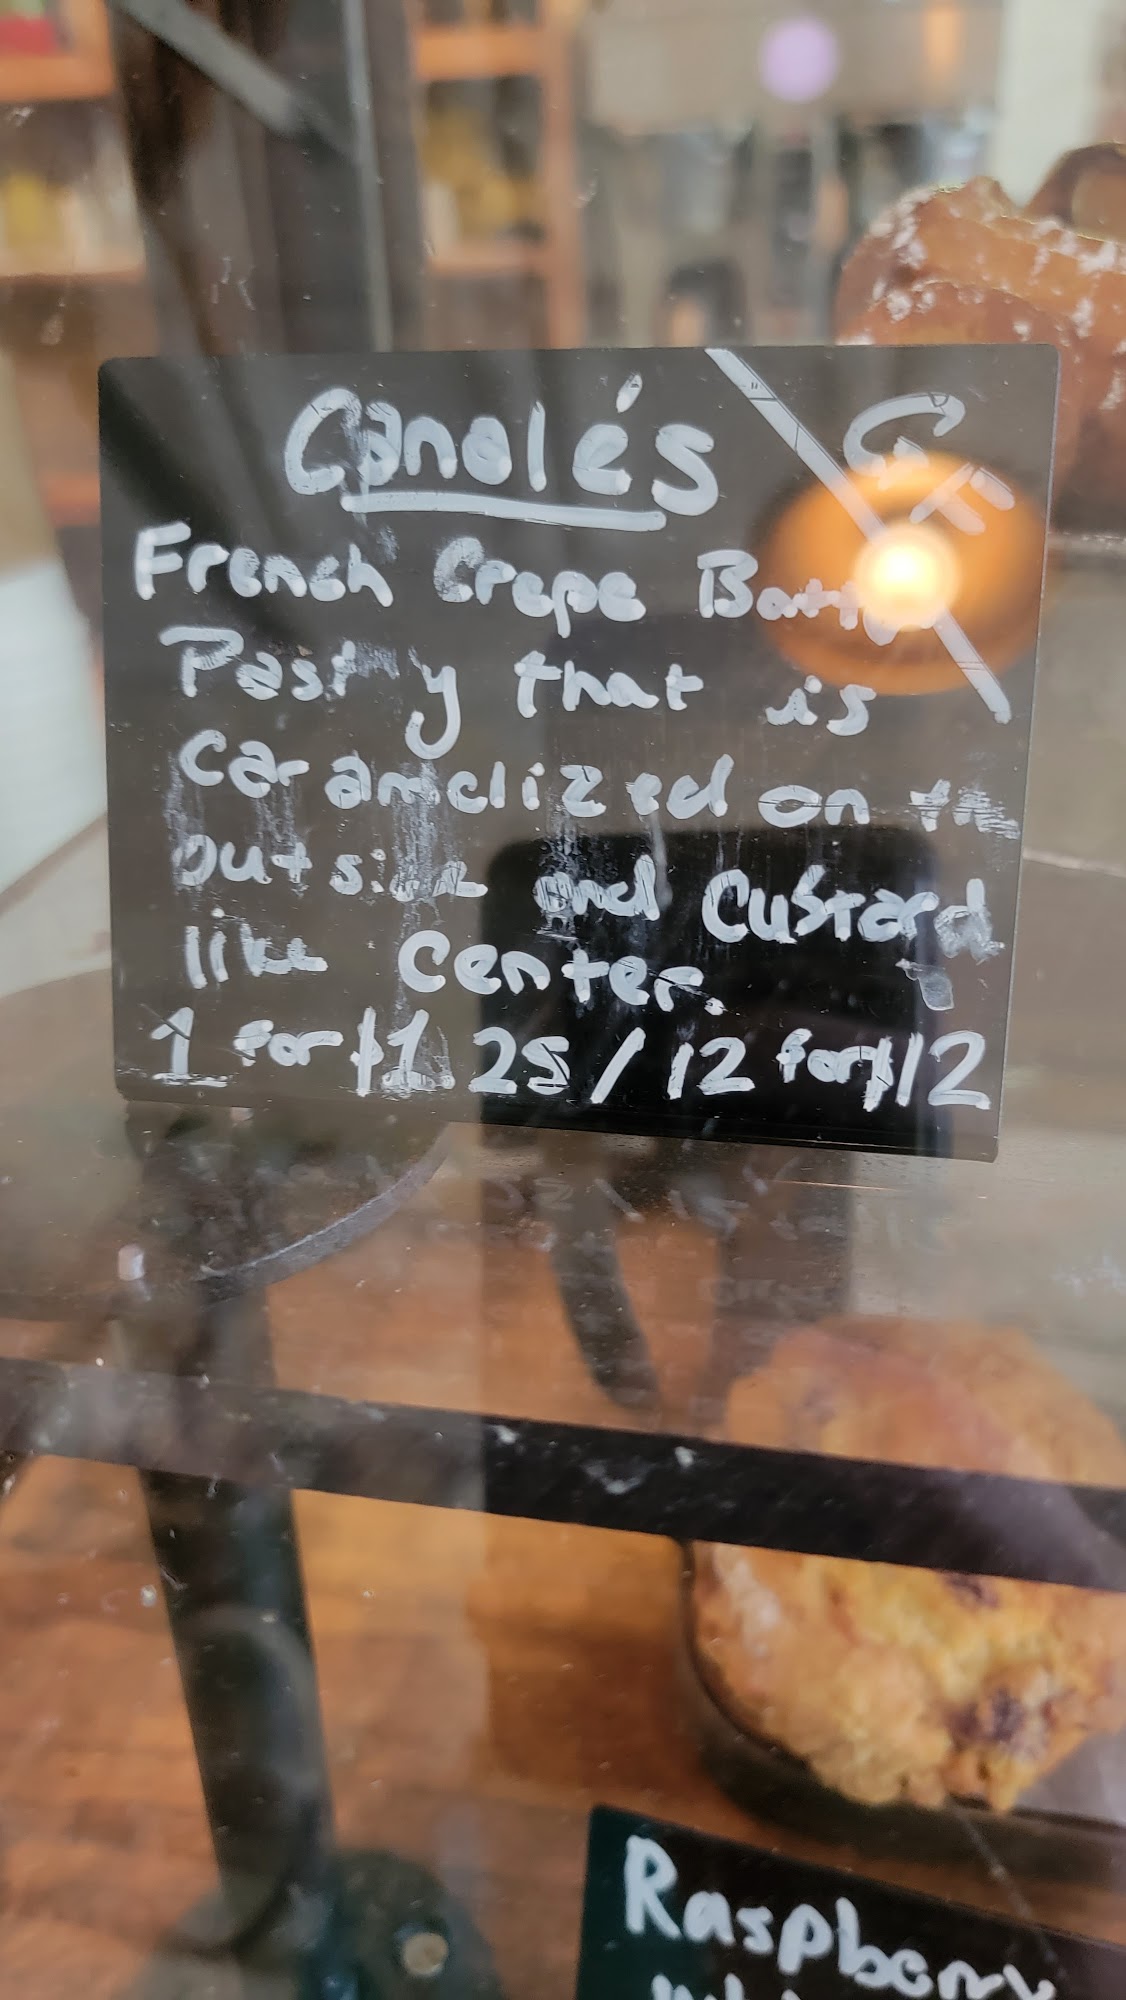 Canelés
GF
French Crepe Batter
Pastry that is
Caramelized on the
outside and Custard
like Center.
1 for $1.25 / 12 for $12
Raspberry